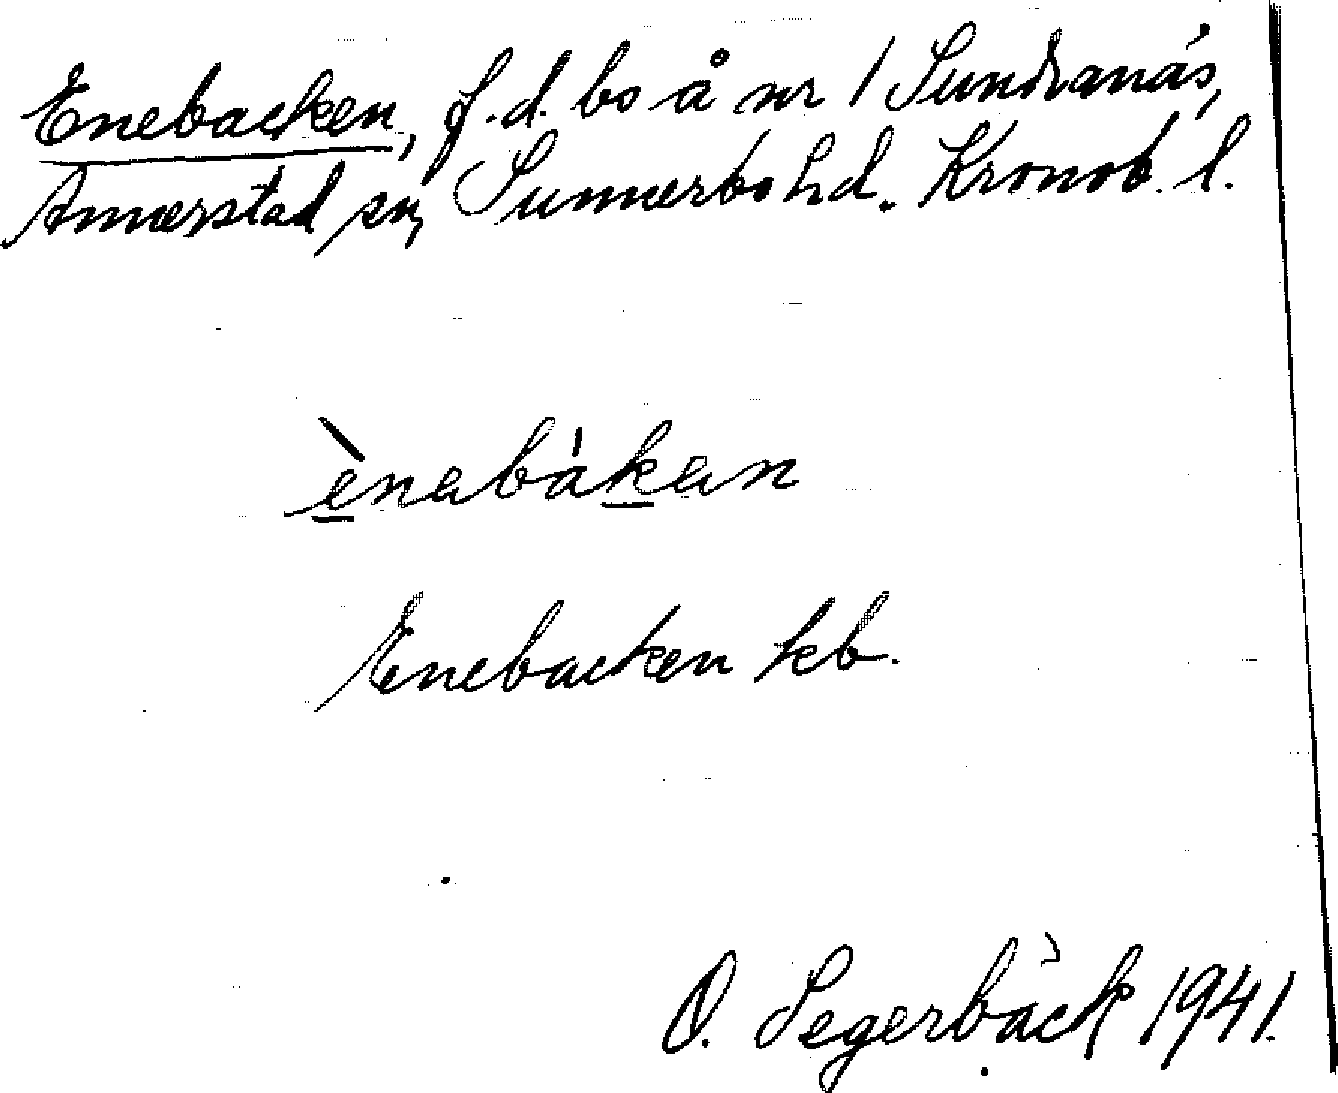 Enebacken, f.d. bs å nr 1 Sundranäs,
Annerstad sn, Sunnerbo hd. Kronob. l.
ènabàkan
Enebacken kb.
O. Segerbäck 1941.